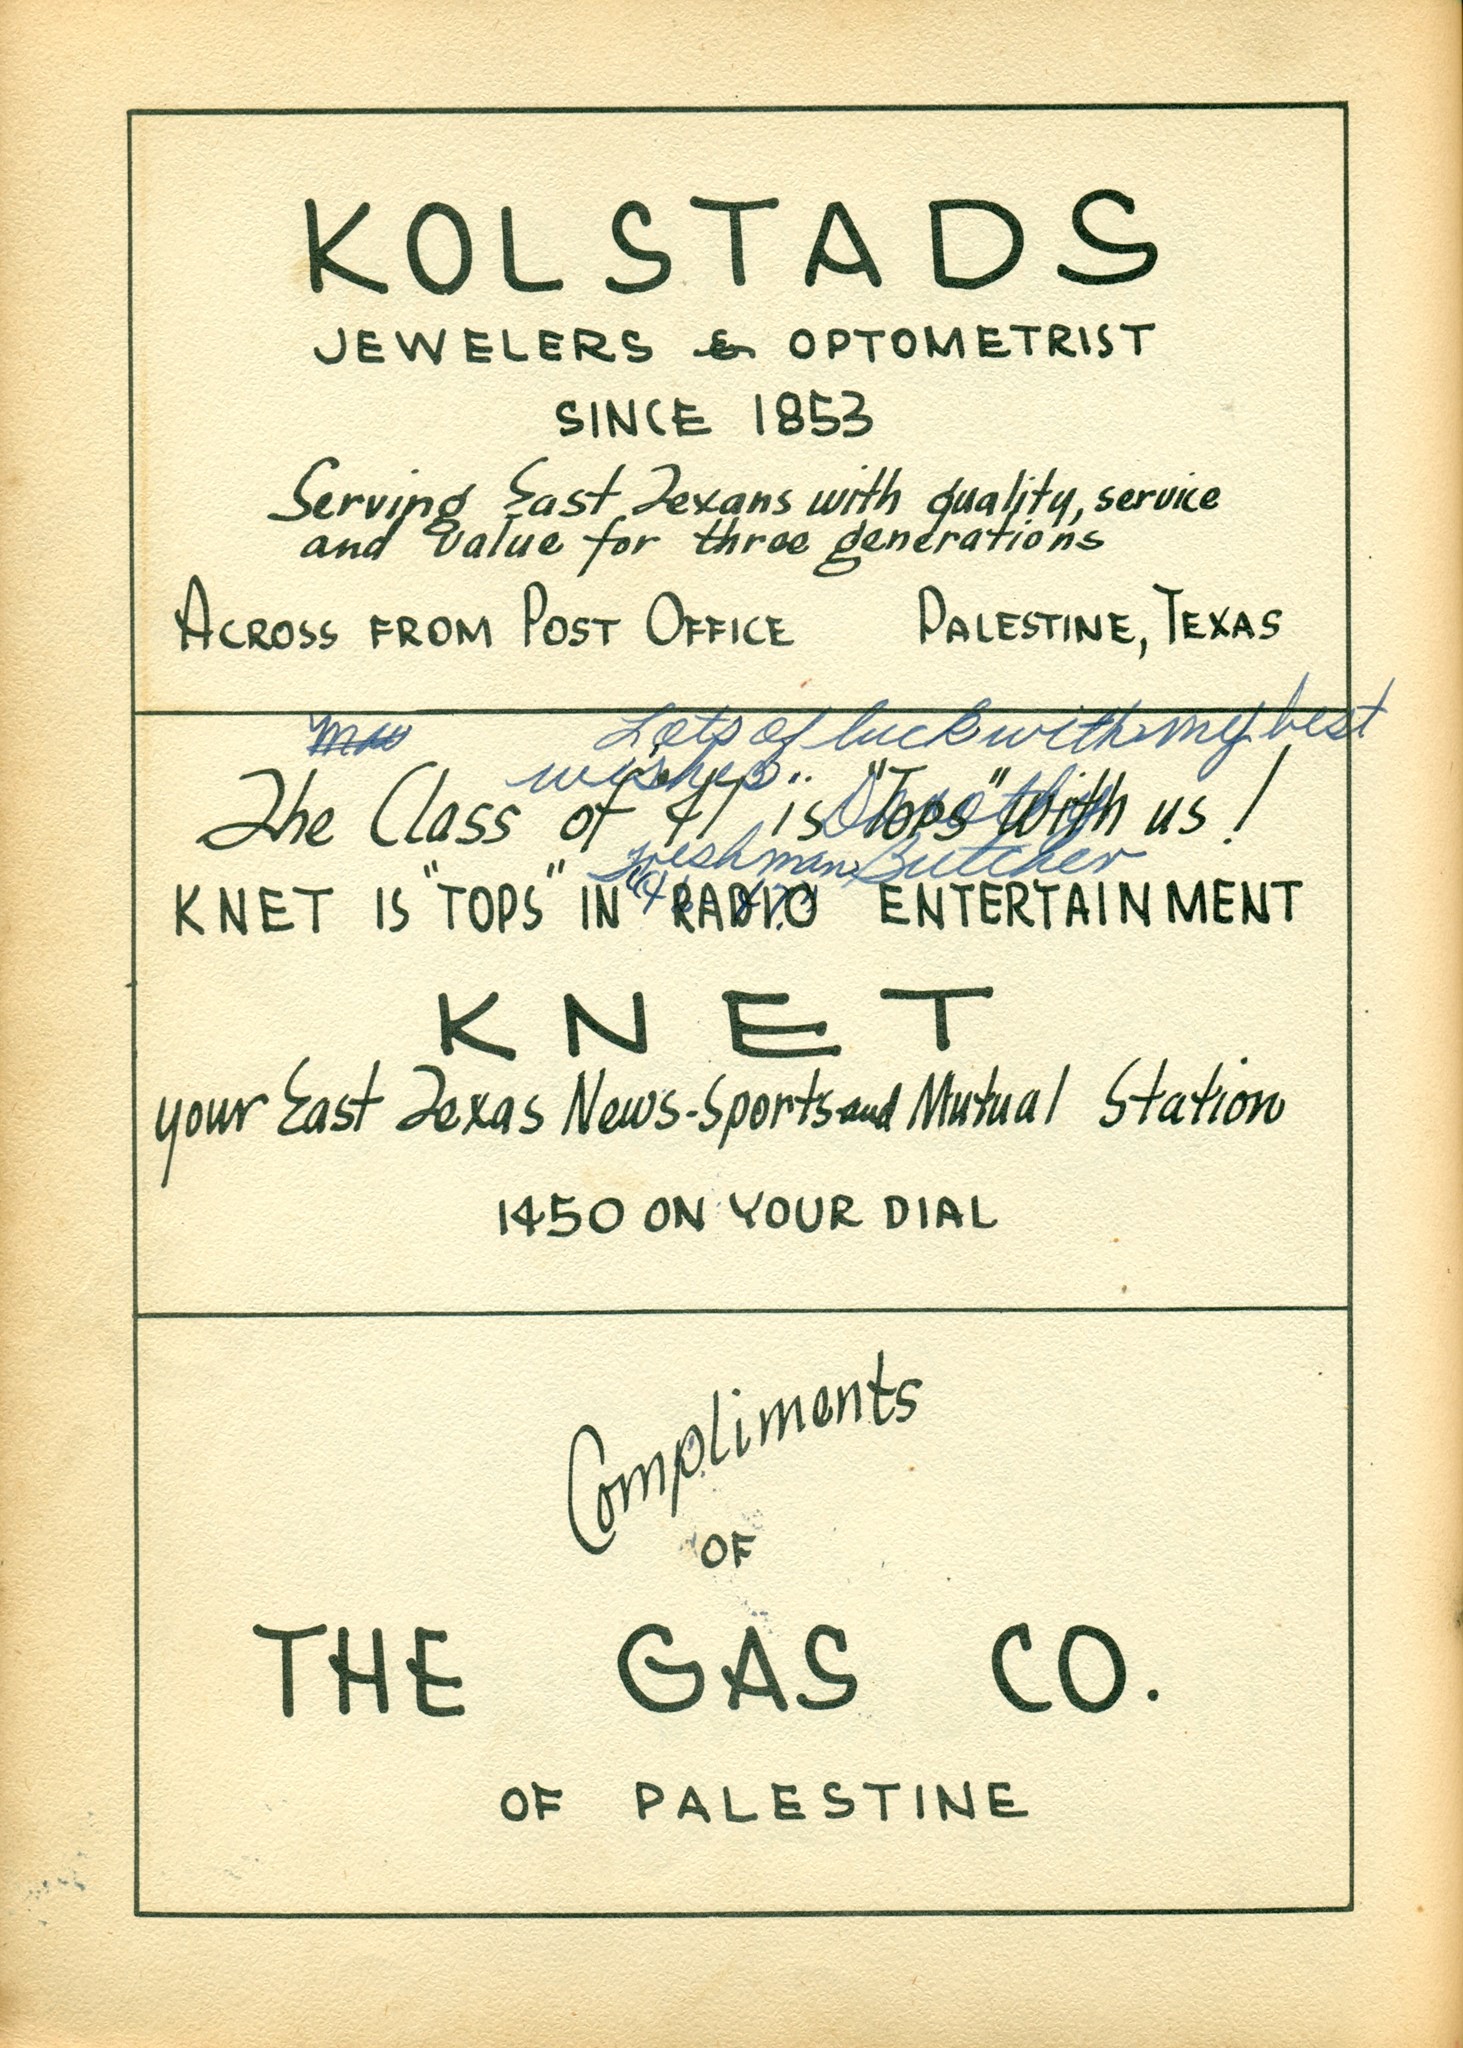 KOLSTADS
JEWELERS & OPTOMETRIST
SINCE 1853
Serving East Texans with quality, service
and value for three generations
ACROSS FROM POST OFFICE PALESTINE, TEXAS
Lots of luck with my best
wishes..
The Class of '47 is "Tops" with us!
Dorothy
Freshman Butcher
KNET IS "TOPS" IN RADIO ENTERTAINMENT
KNET
your East Texas News-Sports and Mutual Station
1450 ON YOUR DIAL
Compliments
OF
THE GAS CO.
OF PALESTINE